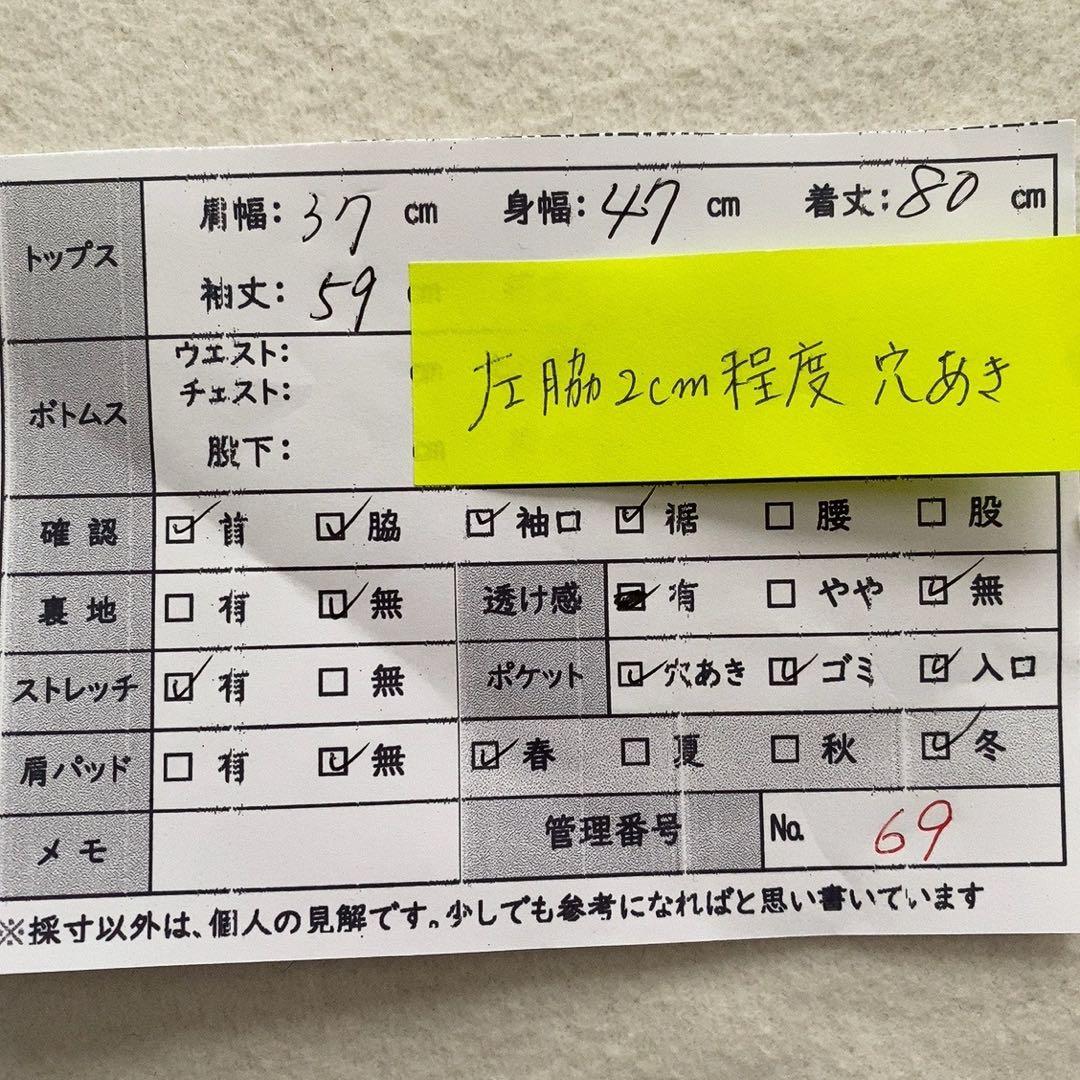 トップス
肩幅: 37 cm 身幅: 47 cm 着丈: 80 cm
袖丈: 59
左脇2cm程度 穴あき
ボトムス
ウエスト:
チェスト:
股下:
確認 ☑首 ☑脇 ☑袖口 ☑裾 □腰 □股
裏地 □有 ☑無 透け感 ■有 □やや ☑無
ストレッチ ☑有 □無 ポケット ☑穴あき ☑ゴミ ☑入口
肩パッド □有 ☑無 ☑春 □夏 □秋 ☑冬
メモ 管理番号 No. 69
※採寸以外は、個人の見解です。少しでも参考になればと思い書いています